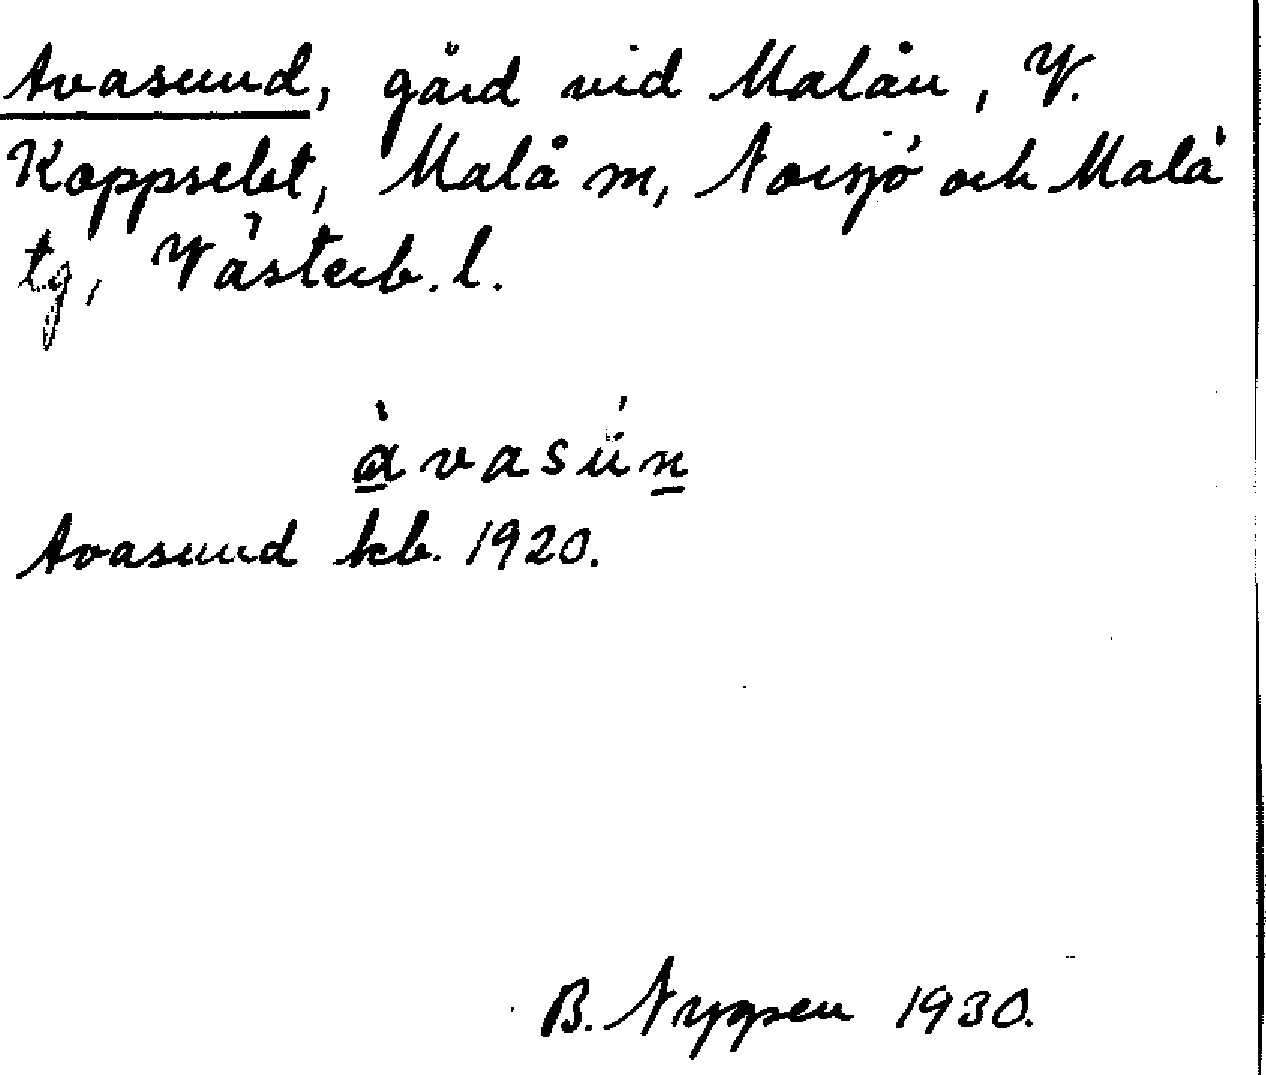 Avasund, gård vid Malån, V.
Koppselet, Malå sn, Norsjö och Malå
tg, Västerb. l.
àvasún
Avasund kb. 1920.
B. 1930.